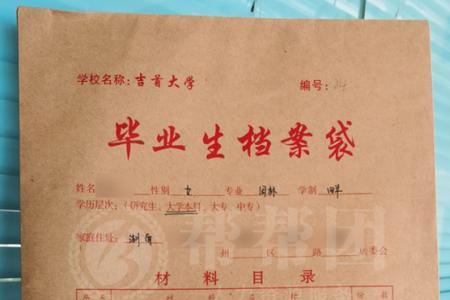 学校名称：吉首大学 编号：04
毕业生档案袋
姓名 性别 女 专业 园林 学制 四年
学历层次：（研究生、大学本科、大专、中专）
家庭住址：湖南 州 区 路 居委会
帮帮团
材料目录